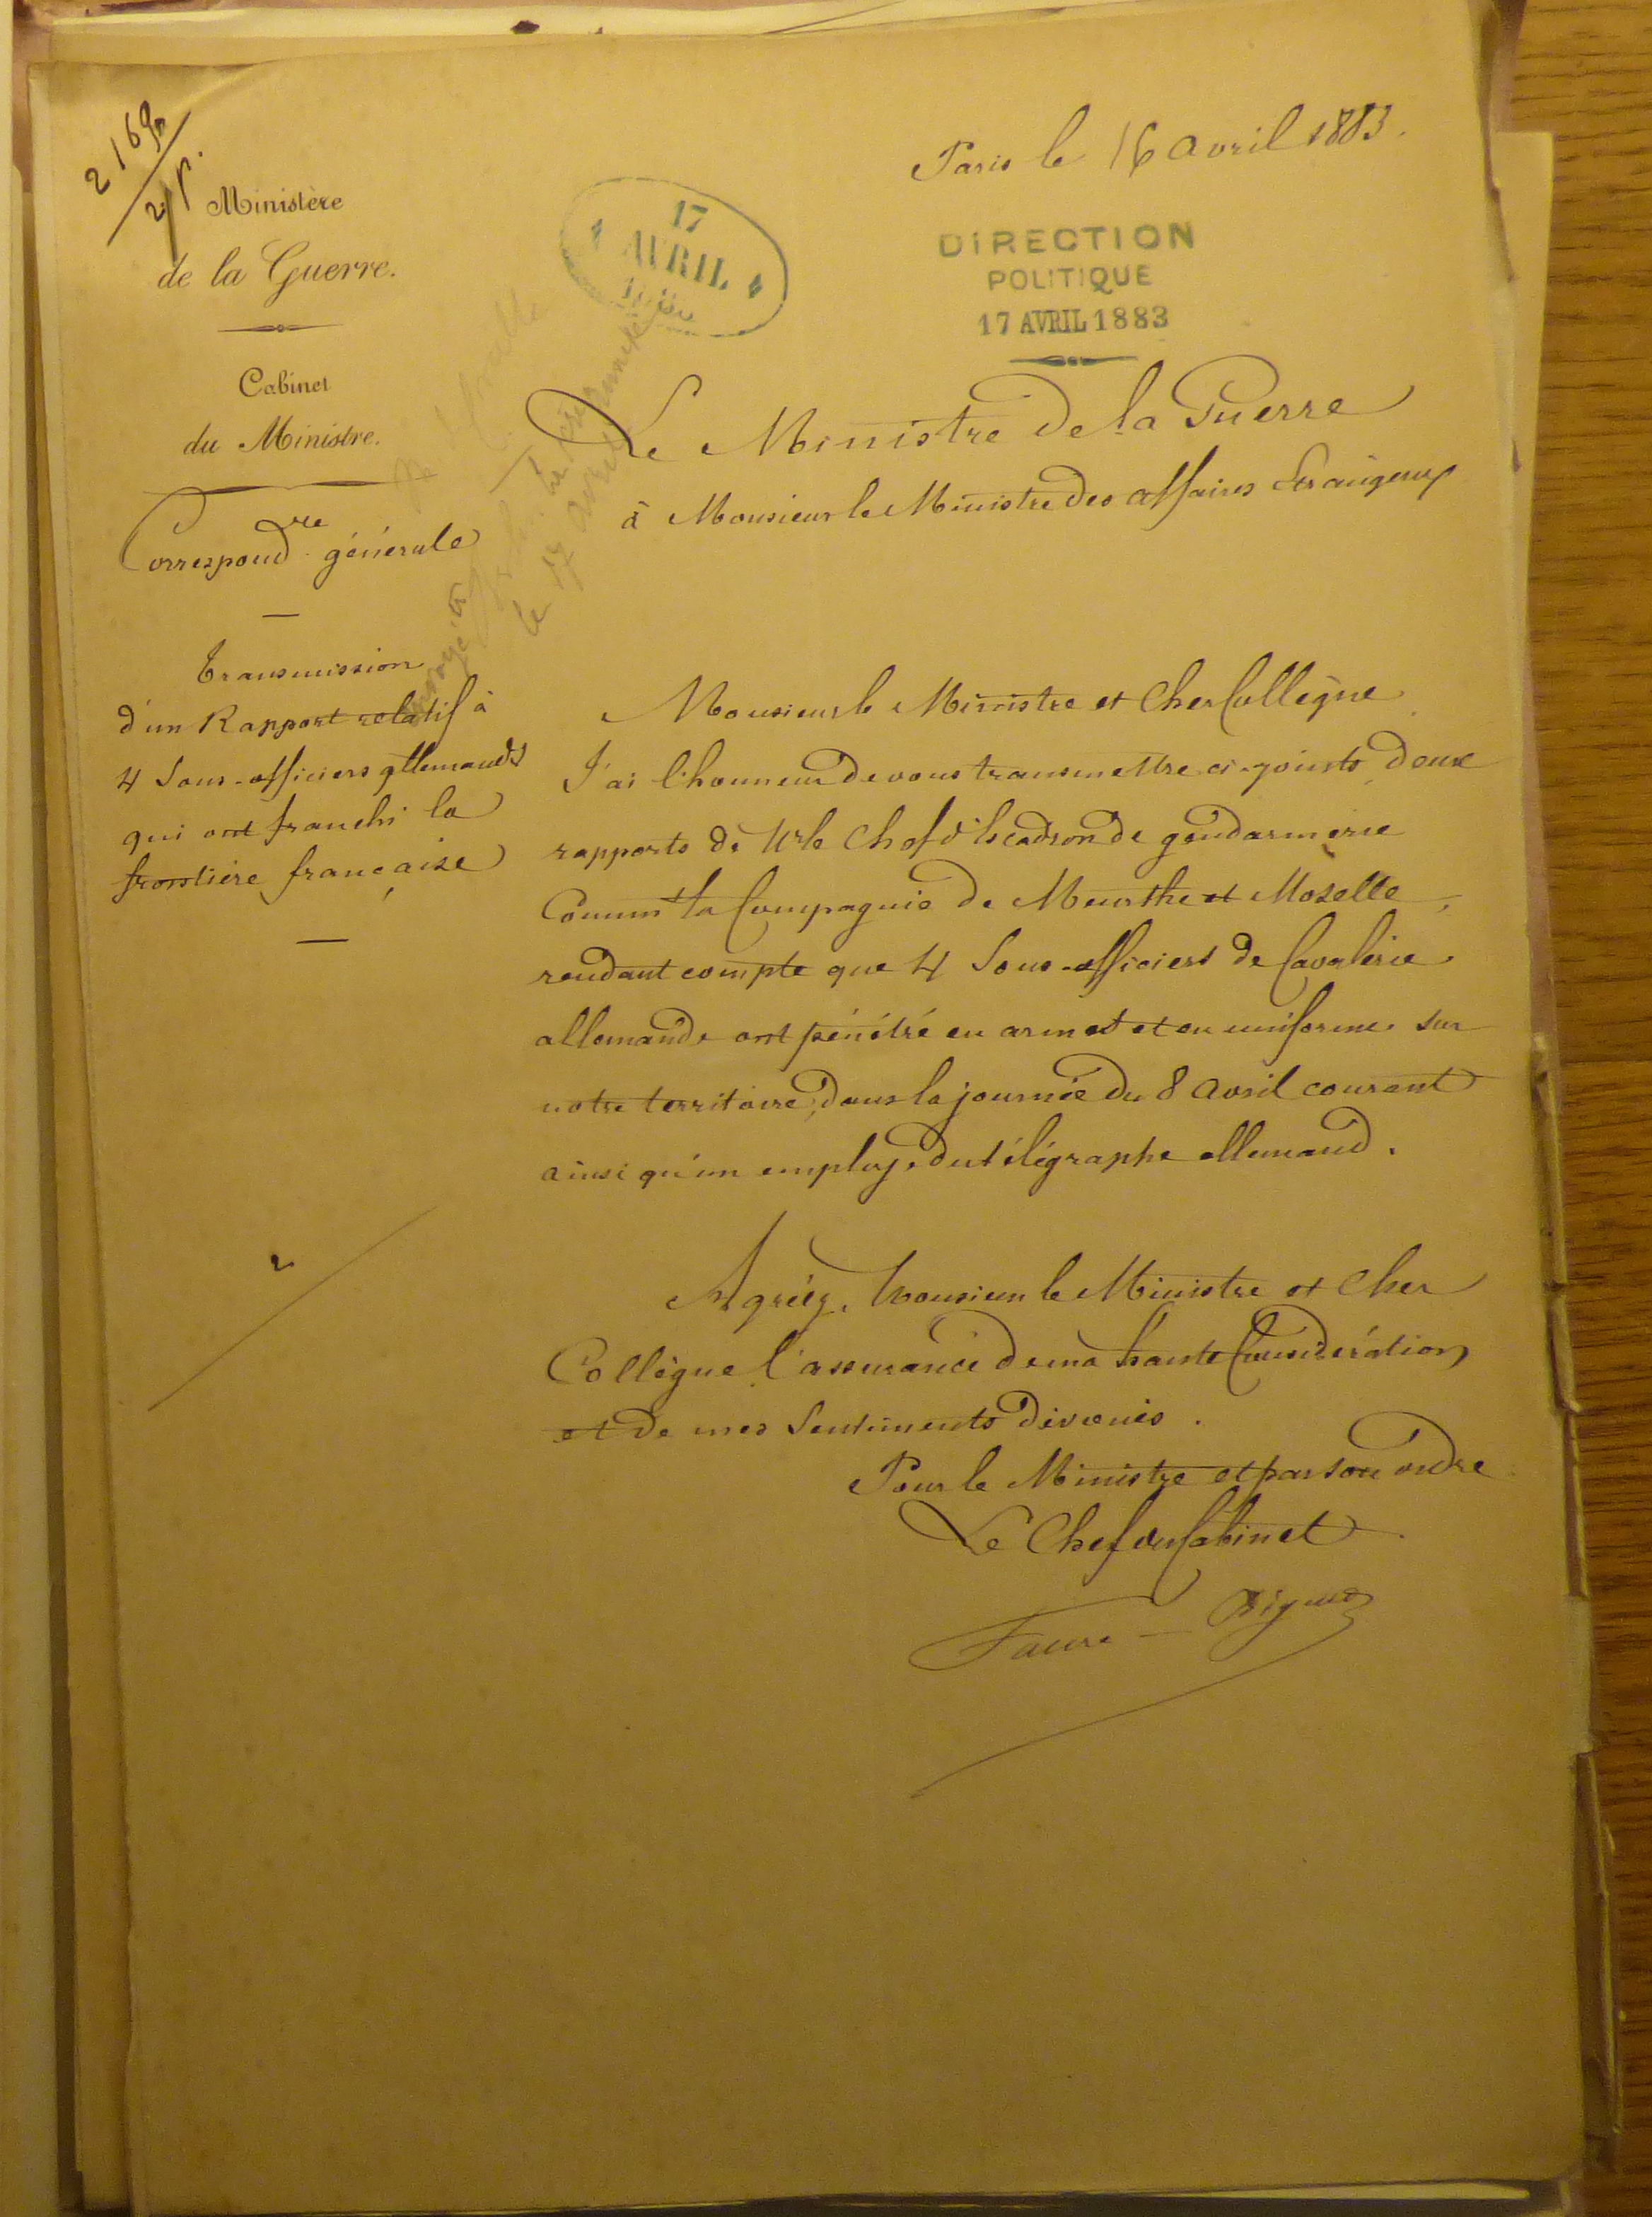 Paris le 16 avril 1883.
2169
2 p.
Ministère
de la Guerre.
Cabinet
du Ministre.
Correspond.ce générale
Transmission
d'un Rapport relatif à
4 Sous-officiers allemands
qui ont franchi la
frontière française
17
AVRIL
DIRECTION
POLITIQUE
17 AVRIL 1883
envoyé à
le 17 avril
Le Ministre de la Guerre
à Monsieur le Ministre des affaires Etrangères
Monsieur le Ministre et Cher Collègue
J'ai l'honneur de vous transmettre ci-joints deux
rapports de Mr le Chef d'Escadron de gendarmerie
Commt la Compagnie de Meurthe et Moselle,
rendant compte que 4 Sous-officiers de Cavalerie
allemande ont pénétré en armes et en uniforme sur
notre territoire, dans la journée du 8 avril courant
ainsi qu'un employé du télégraphe allemand.
2
Agréez, Monsieur le Ministre et Cher
Collègue l'assurance de ma haute Considération
et de mes Sentiments dévoués.
Pour le Ministre et par son ordre
Le Chef du Cabinet
Faure - Biguet